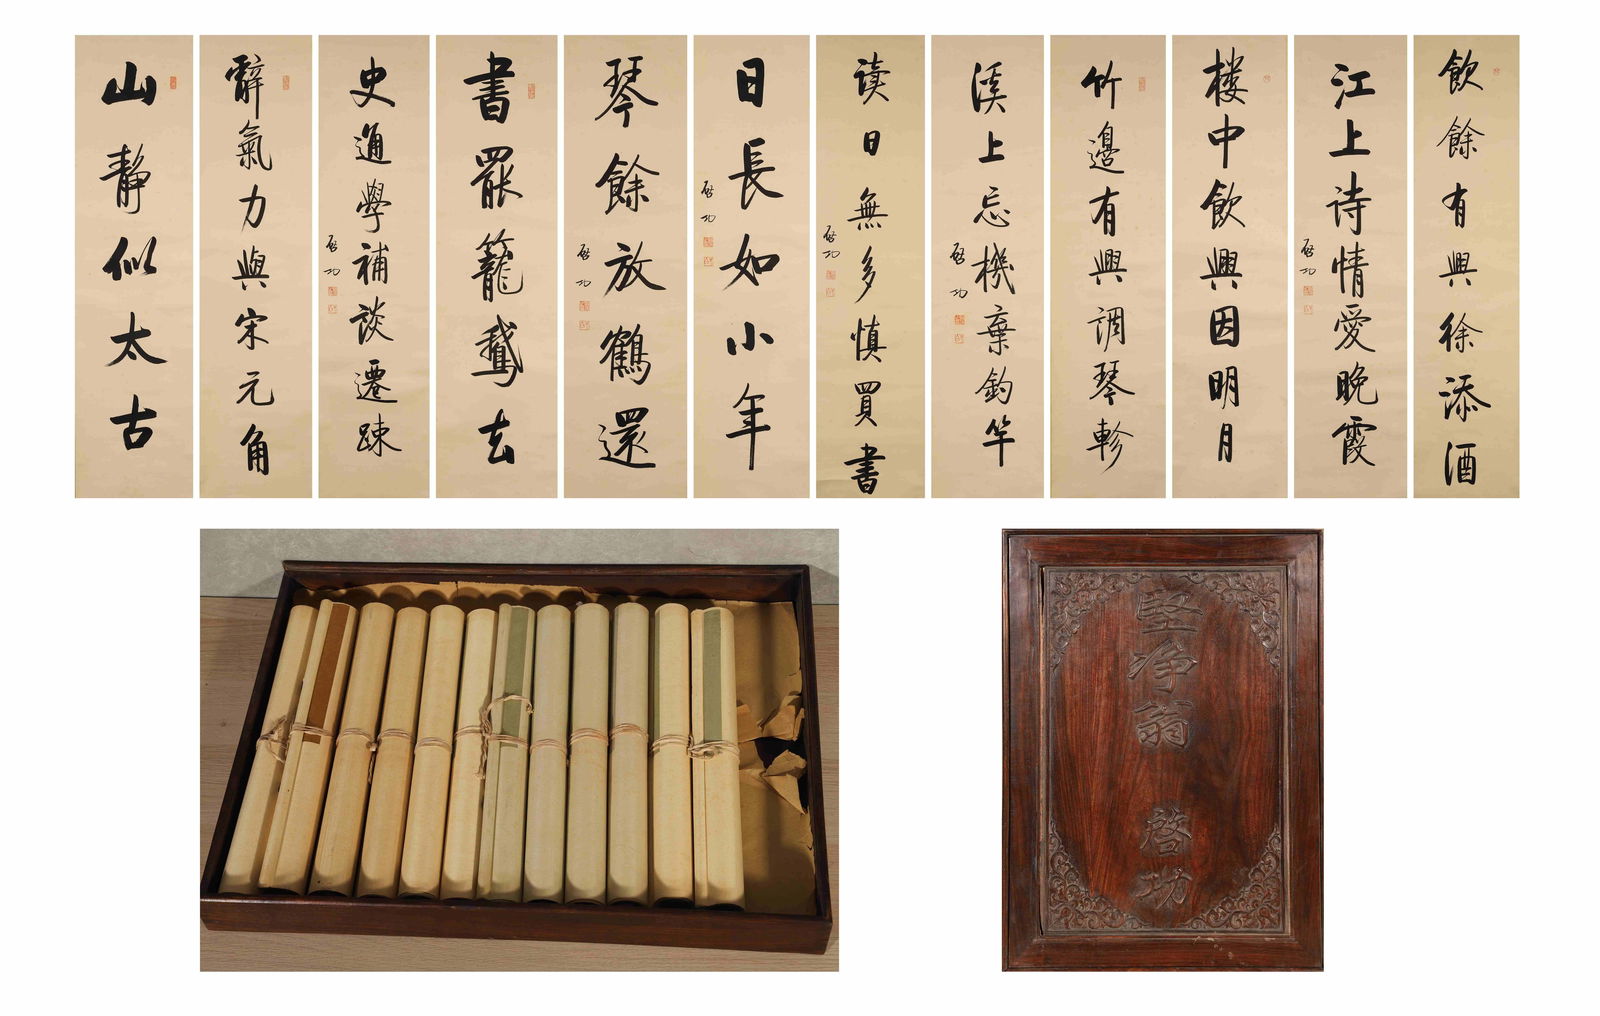 飲餘有興徐添酒
江上诗情愛晚霞
启功
楼中飲興因明月
竹邊有興調琴軫
溪上忘機棄釣竿
启功
读日無多慎買書
启功
日長如小年
启功
琴餘放鶴還
启功
書罷籠鵝去
史通學補談遷踈
启功
辭氣力與宋元角
山靜似太古
堅净翁
啓功